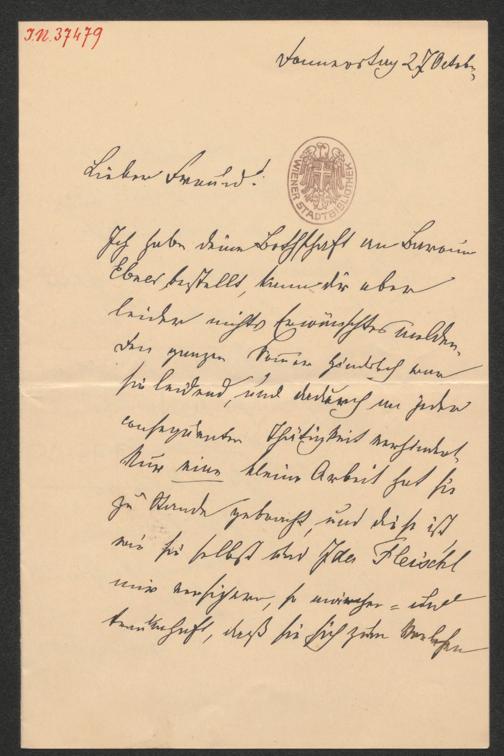 J.N. 37479
Donnerstag 27 Octob.
WIENER STADTBIBLIOTHEK
Lieber Freund!
Ich habe deine Bothschaft an Baronin
Ebner bestellt, kann dir aber
leider nichts Erwünschtes melden.
Den ganzen Sommer hindurch war
sie leidend, und dadurch an jeder
consequenten Thätigkeit verhindert.
Nur eine kleine Arbeit hat sie
zu Stande gebracht, und diese ist,
wie sie selbst und Ida Fleischl
mir versichern, so
haft, daß sie sich zum Vorlesen